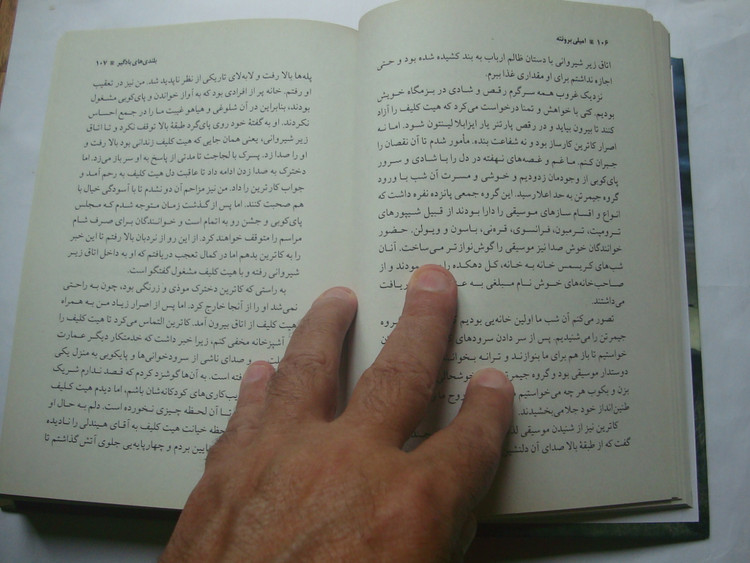 ۱۰۶ ■ امیلی برونته
اتاق زیر شیروانی با دستان ظالم ارباب به بند کشیده شده بود و حتی
اجازه نداشتم برای او مقداری غذا ببرم.
نزدیک غروب همه سرگرم رقص و شادی در بزمگاه خویش
بودیم. کتی با خواهش و تمنا درخواست می‌کرد که هیت کلیف را آزاد
کنند تا بیرون بیاید و در رقص پارتنر یار ایزابلا لینتون شود. اما نه
اصرار کاترین کارساز بود و نه شفاعت بنده. مأمور شدم تا آن نقصان را
جبران کنم. ما غم و غصه‌های نهفته در دل را با شادی و سرور
پای‌کوبی از وجودمان زدودیم و خوشی و مسرت آن شب با ورود
گروه جیمرتن به حد اعلا رسید. این گروه جمعی پانزده نفره داشت که
انواع و اقسام سازهای موسیقی را دارا بودند از قبیل شیپورهای
ترومپت، ترمبون، فرانسوی، قره‌نی، باسون و ویولن. حضور
خوانندگان خوش صدا نیز موسیقی را گوش‌نوازتر می‌ساخت. آنان
شب‌های کریسمس خانه به خانه، کل دهکده را مودند و از
صاحب‌خانه‌های خوش نام مبلغی به یافت
می‌داشتند.
تصور می‌کنم آن شب ما اولین خانه‌یی بودیم گروه
جیمرتن را می‌شنیدیم. پس از سر دادن سرودهای
خواستیم تا باز هم برای ما بنوازند و ترانه بخوانند
دوستدار موسیقی بود و گروه جیمر خوشحالی
بزن و بکوب هر چه می‌خواستیم ما
طنین‌انداز خود جلا می‌بخشیدند.
کاترین نیز از شنیدن موسیقی لذ
گفت که از طبقهٔ بالا صدای آن دلنش
بلندی‌های بادگیر ■ ۱۰۷
پله‌ها بالا رفت و لابه‌لای تاریکی از نظر ناپدید شد. من نیز در تعقیب
او رفتم. خانه پر از افرادی بود که به آواز خواندن و پای‌کوبی مشغول
بودند، بنابراین در آن شلوغی و هیاهو غیبت ما را در جمع احساس
نکردند. او به گفتهٔ خود روی پای‌گرد طبقهٔ بالا توقف نکرد و تا اتاق
زیر شیروانی، یعنی همان جایی که هیت کلیف زندانی بود بالا رفت و
او را صدا زد. پسرک با لجاجت تا مدتی از پاسخ به او سر باز می‌زد. اما
دخترک به صدا زدن ادامه داد تا عاقبت دل هیت کلیف به رحم آمد و
جواب کاترین را داد. من نیز مزاحم آن دو نشدم تا با آسودگی خیال با
هم صحبت کنند. اما پس از گذشت زمان متوجه شدم که مجلس
پای‌کوبی و جشن رو به اتمام است و خوانندگان برای صرف شام
مراسم را متوقف خواهند کرد. از این رو از نردبان بالا رفتم تا این خبر
را به کاترین بدهم اما در کمال تعجب دریافتم که او به داخل اتاق زیر
شیروانی رفته و با هیت کلیف مشغول گفتگو است.
به راستی که کاترین دخترک موذی و زرنگی بود، چون به راحتی
نمی‌شد او را از آنجا خارج کرد. اما پس از اصرار زیاد من به همراه
هیت کلیف از اتاق بیرون آمد. کاترین التماس می‌کرد تا هیت کلیف را
آشپزخانه مخفی کنم، زیرا خبر داشت که خدمتکار دیگر عمارت
و صدای ناشی از سرودخوانی‌ها و پایکوبی به منزل یکی
فته است. به آن‌ها گوشزد کردم که قصد ندارم شریک
یب‌کاری‌های کودکانه‌شان باشم، اما دیدم هیت کلیف
تا آن لحظه چیزی نخورده است. دلم به حال او
لحظه خیانت هیت کلیف به آقای هیندلی را نادیده
پایین بردم و چهارپایه‌یی جلوی آتش گذاشتم تا